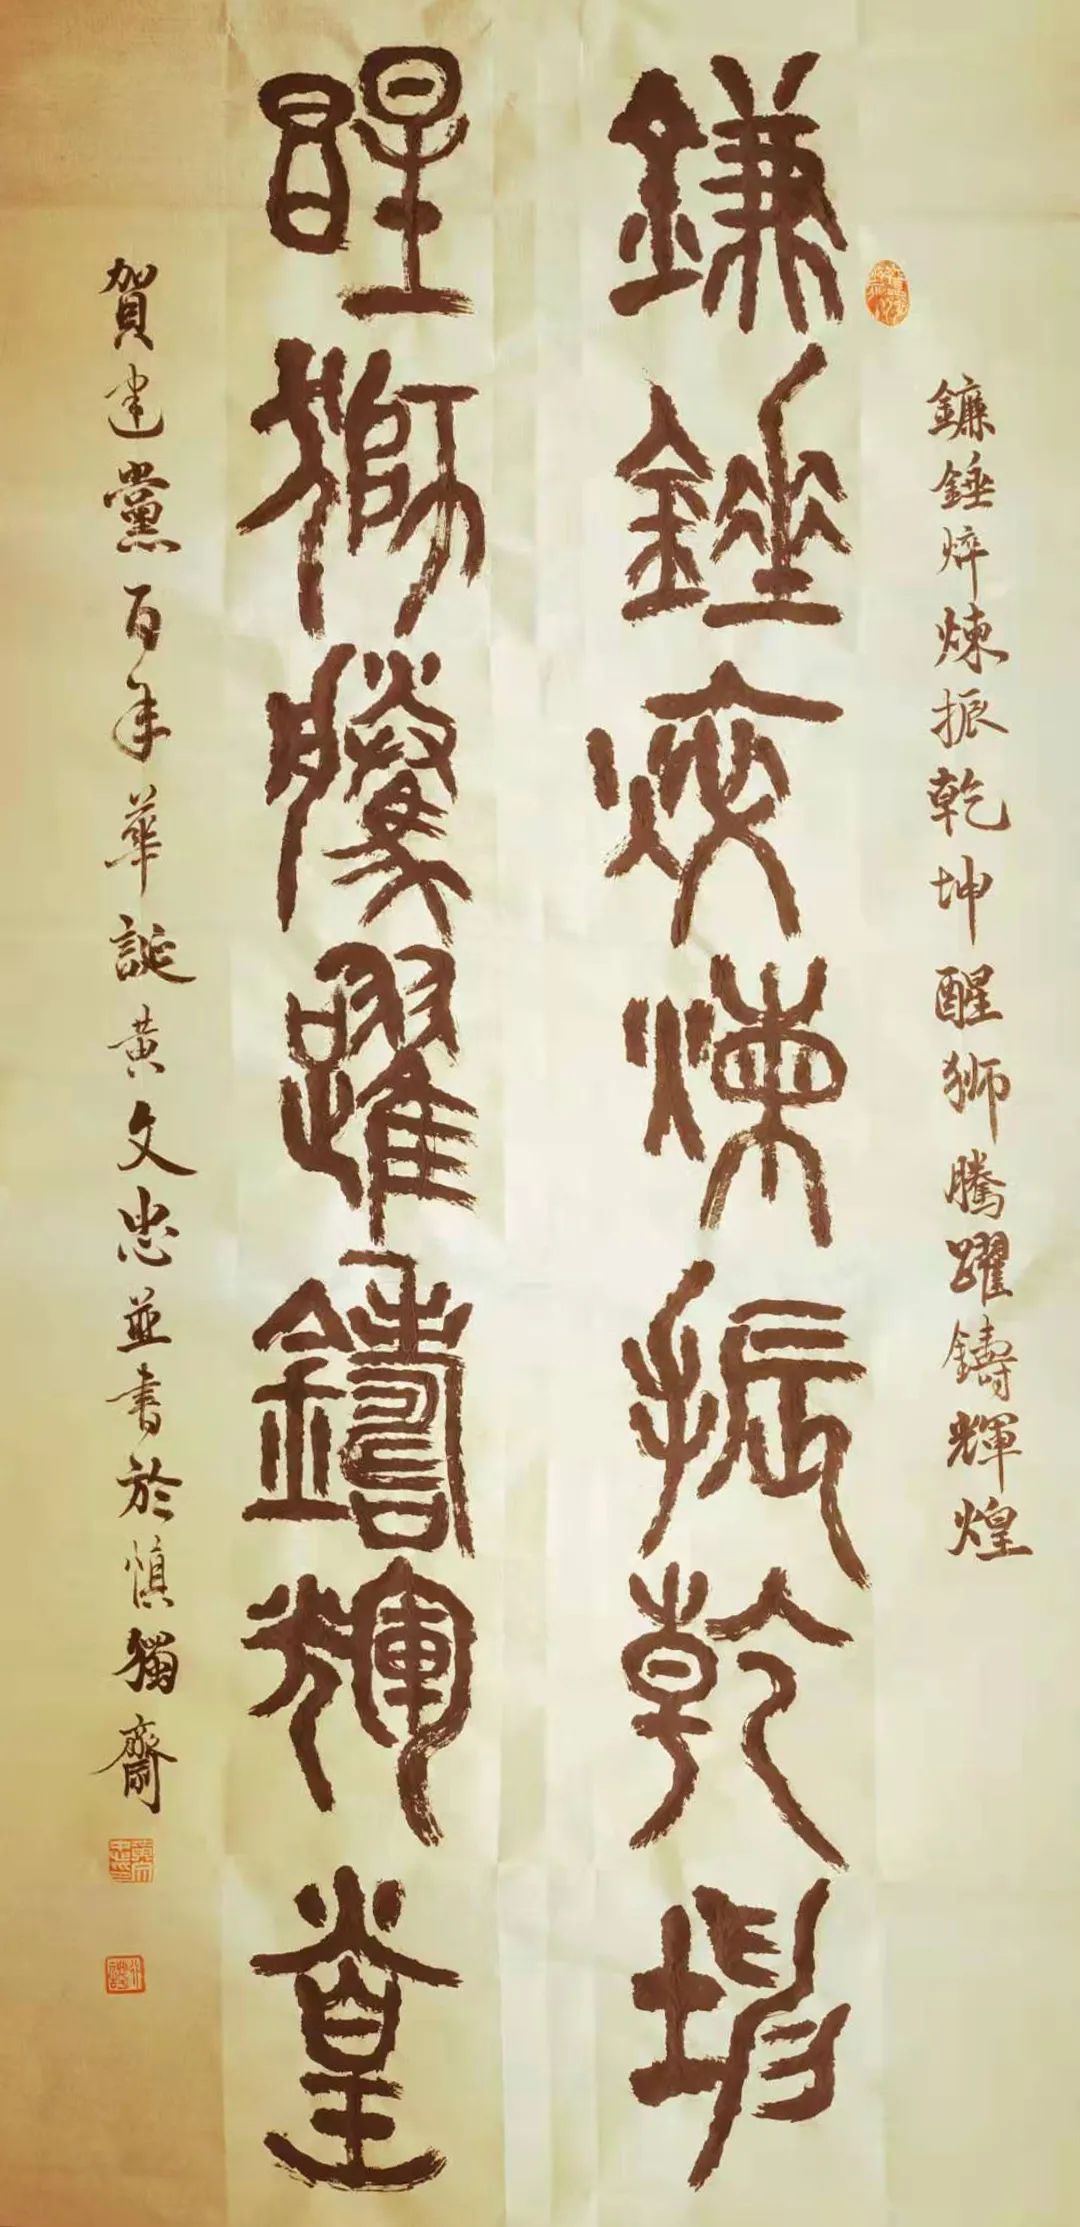 鐮錘焠煉振乾坤醒狮騰躍鑄輝煌
鎌錘焠煉振乾坤
醒獅騰躍鑄輝煌
賀建黨百年華誕黄文忠並書於慎獨齋